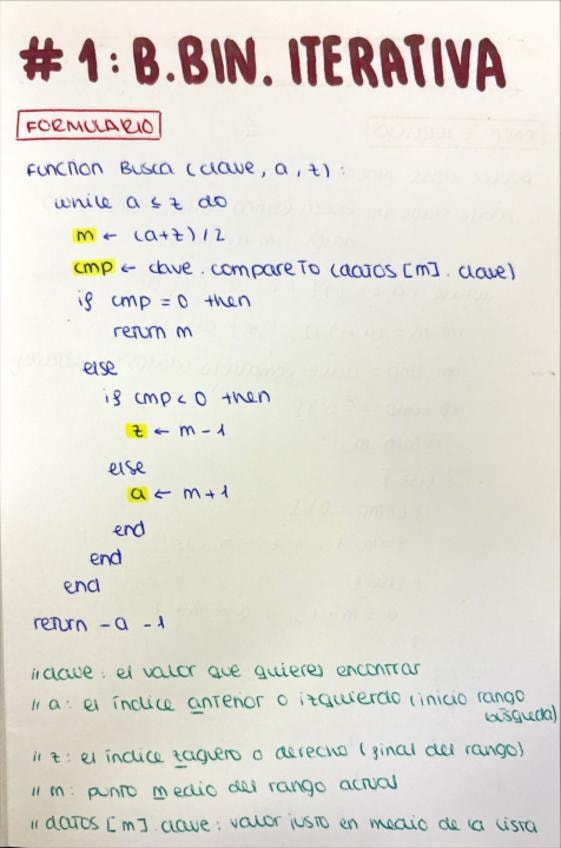 # 1: B.BIN. ITERATIVA
FORMULARIO
Function Busca (clave, a, z):
while a ≤ z do
m ← (a+z)/2
cmp ← clave.compareTo (datos [m]. clave)
if cmp = 0 then
return m
else
if cmp < 0 then
z ← m-1
else
a ← m+1
end
end
end
return -a -1
// clave: el valor que quieres encontrar
// a: el índice anterior o izquierdo (inicio rango
búsqueda)
// z: el índice zaguero o derecho (final del rango)
// m: punto medio del rango actual
// datos [m]. clave: valor justo en medio de la lista